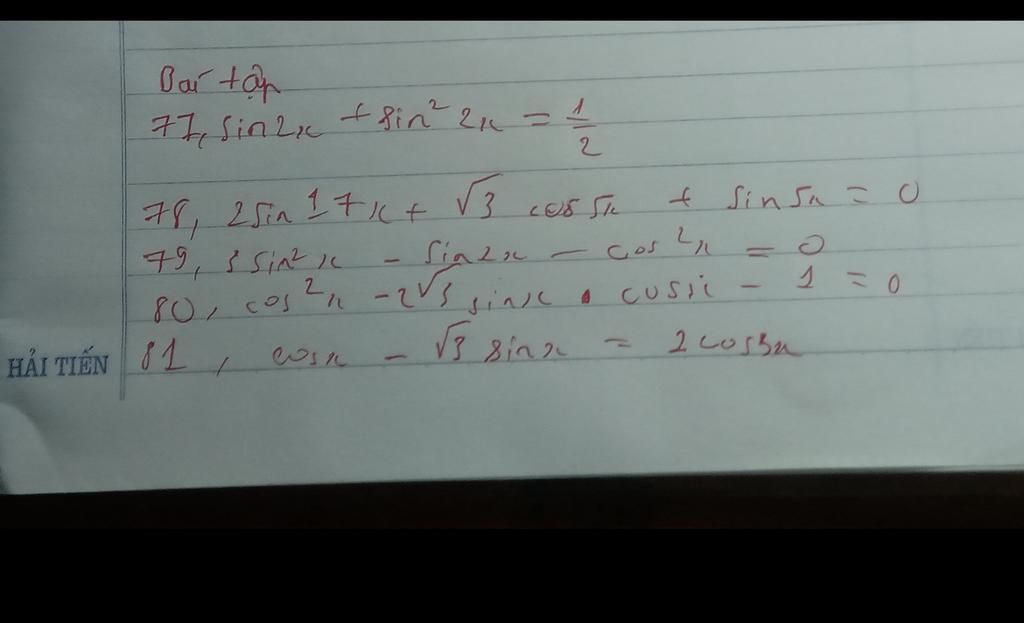 Bài tập
77, sin2x + sin² 2x = 1/2
78, 2sin 17x + √3 cos 5x + sin 5x = 0
79, 3 sin² x - sin2x - cos² x = 0
80, cos² x - 2√3 sinx . cosx - 1 = 0
HẢI TIẾN 81, cosx - √3 sinx = 2cos3x